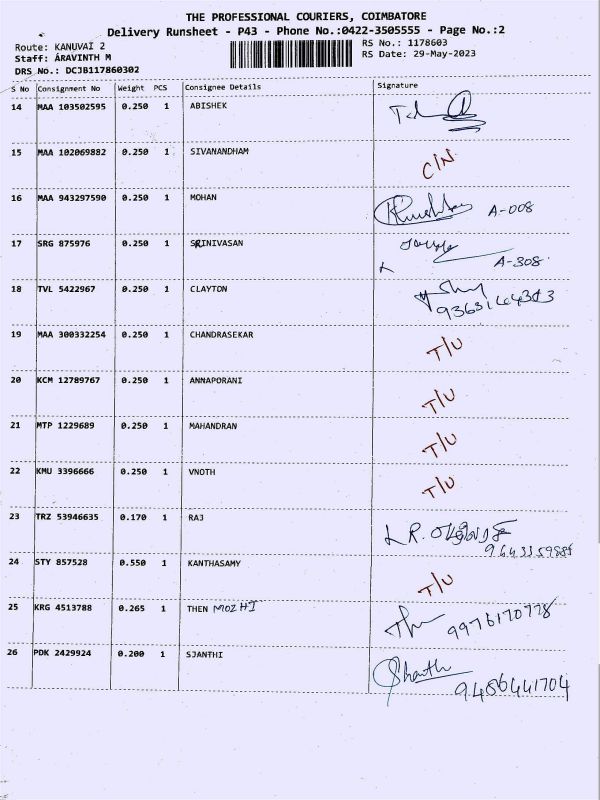 THE PROFESSIONAL COURIERS, COIMBATORE
Delivery Runsheet - P43 - Phone No.:0422-3505555 - Page No.:2
Route: KANUVAI 2
RS No.: 1178603
Staff: ARAVINTH M
RS Date: 29-May-2023
DRS No.: DCJB117860302
S No Consignment No Weight PCS Consignee Details Signature
14 MAA 103502595 0.250 1 ABISHEK
15 MAA 102069882 0.250 1 SIVANANDHAM C/N
16 MAA 943297590 0.250 1 MOHAN A-008
17 SRG 875976 0.250 1 SRINIVASAN A-308
18 TVL 5422967 0.250 1 CLAYTON
19 MAA 300332254 0.250 1 CHANDRASEKAR T/U
20 KCM 12789767 0.250 1 ANNAPORANI T/U
21 MTP 1229689 0.250 1 MAHANDRAN T/U
22 KMU 3396666 0.250 1 VNOTH T/U
23 TRZ 53946635 0.170 1 RAJ
24 STY 857528 0.550 1 KANTHASAMY T/U
25 KRG 4513788 0.265 1 THEN MOZHI 9976170778
26 PDK 2429924 0.200 1 SJANTHI Shanth
9456441704